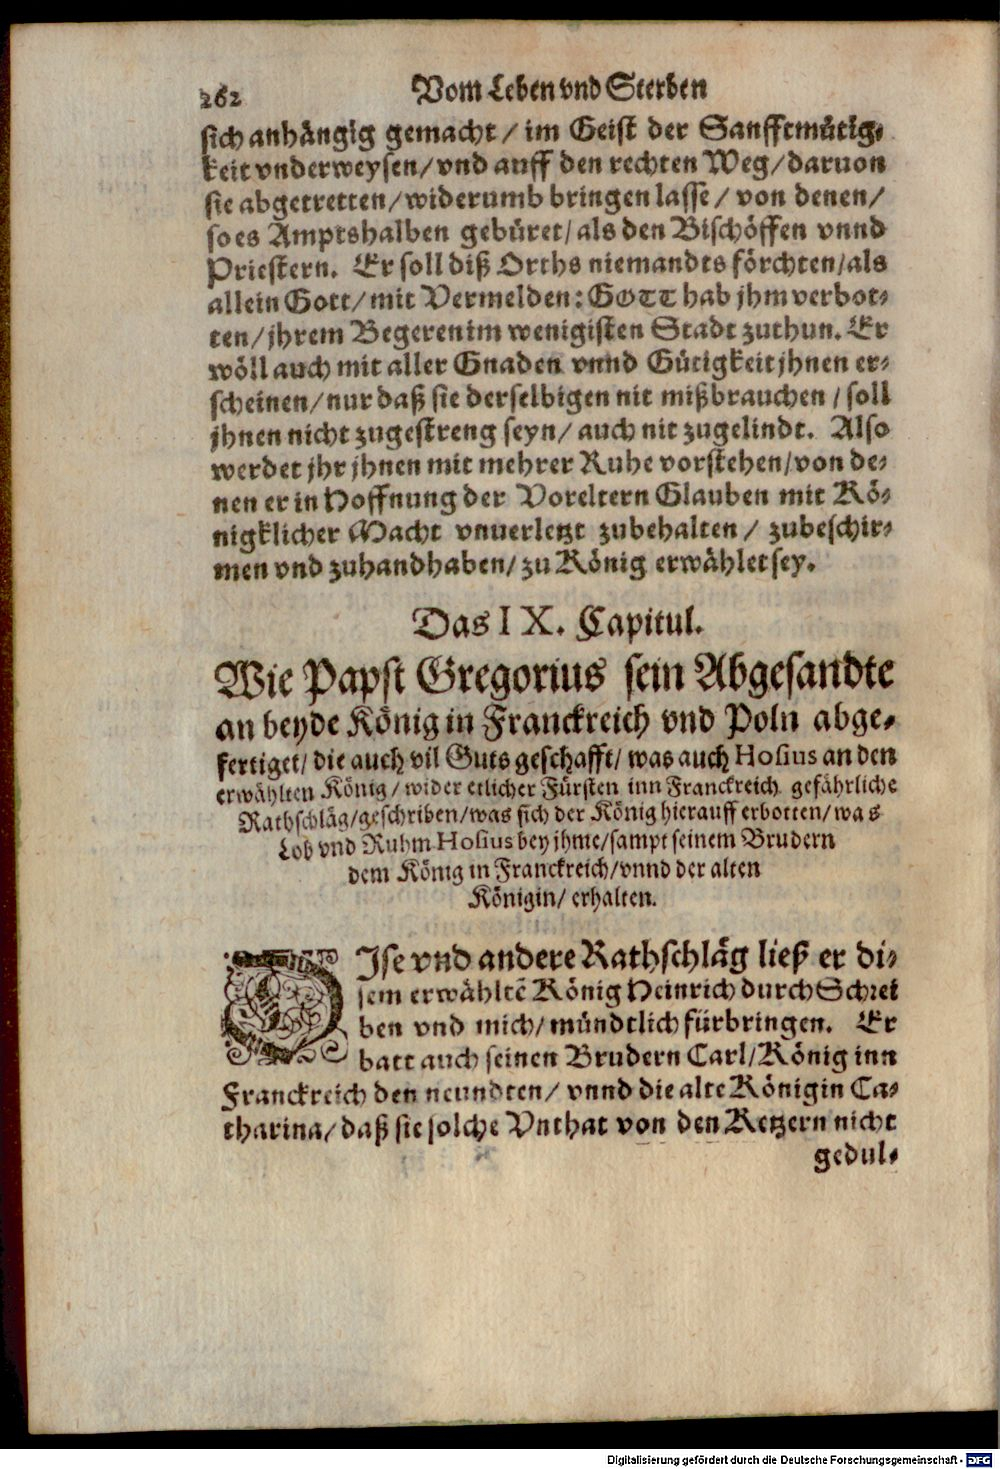 262 Vom Leben vnd Sterben
sich anhängig gemacht / im Geist der Sanfftmütig-
keit vnderweysen / vnd auff den rechten Weg / daruon
sie abgetretten / widerumb bringen lasse / von denen /
so es Amptshalben gebüret / als den Bischöffen vnnd
Priestern. Er soll diß Orths niemandts förchten / als
allein Gott / mit Vermelden: GOTT hab jhm verbot-
ten / jhrem Begeren im wenigisten Stadt zuthun. Er
wöll auch mit aller Gnaden vnnd Gütigkeit jhnen er-
scheinen / nur daß sie derselbigen nit mißbrauchen / soll
jhnen nicht zugestreng seyn / auch nit zugelindt. Also
werdet jhr jhnen mit mehrer Ruhe vorstehen / von de-
nen er in Hoffnung der Voreltern Glauben mit Kö-
nigklicher Macht vnuerletzt zubehalten / zubeschir-
men vnd zuhandhaben / zu König erwählet sey.
Das IX. Capitul.
Wie Papst Gregorius sein Abgesandte
an beyde König in Franckreich vnd Poln abge-
fertiget / die auch vil Guts geschafft / was auch Hosius an den
erwählten König / wider etlicher Fürsten inn Franckreich gefährliche
Rathschläg / geschriben / was sich der König hierauff erbotten / was
Lob vnd Ruhm Hosius bey jhme / sampt seinem Brudern
dem König in Franckreich / vnnd der alten
Königin / erhalten.
DIse vnd andere Rathschläg ließ er di-
sem erwähltē König Heinrich durch Schrei
ben vnd mich / mündtlich fürbringen. Er
batt auch seinen Brudern Carl / König inn
Franckreich den neundten / vnnd die alte Königin Ca-
tharina / daß sie solche Vnthat von den Ketzern nicht
gedul-
Digitalisierung gefördert durch die Deutsche Forschungsgemeinschaft - DFG